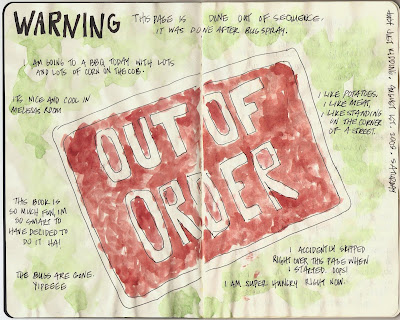 WARNING
THIS PAGE IS DONE OUT OF SEQUENCE.
IT WAS DONE AFTER BUGSPRAY.
I AM GOING TO A BBQ TODAY WITH LOTS
AND LOTS OF CORN ON THE COB.
ITS NICE AND COOL IN
ROOM
I LIKE POTATOES.
I LIKE MEAT,
I LIKE STANDING
ON THE CORNER
OF A STREET.
OUT OF
ORDER
THIS BOOK IS
SO MUCH FUN, IM
SO SMART TO
HAVE DECIDED TO
DO IT HA!
THE BUGS ARE GONE.
YIPEEEE
I ACCIDENTLY SKIPPED
RIGHT OVER THIS PAGE WHEN
I STARTED. OOPS!
I AM SUPER HUNGRY RIGHT NOW.
WEDDING. AUGUST 1ST. 2009. SATURDAY